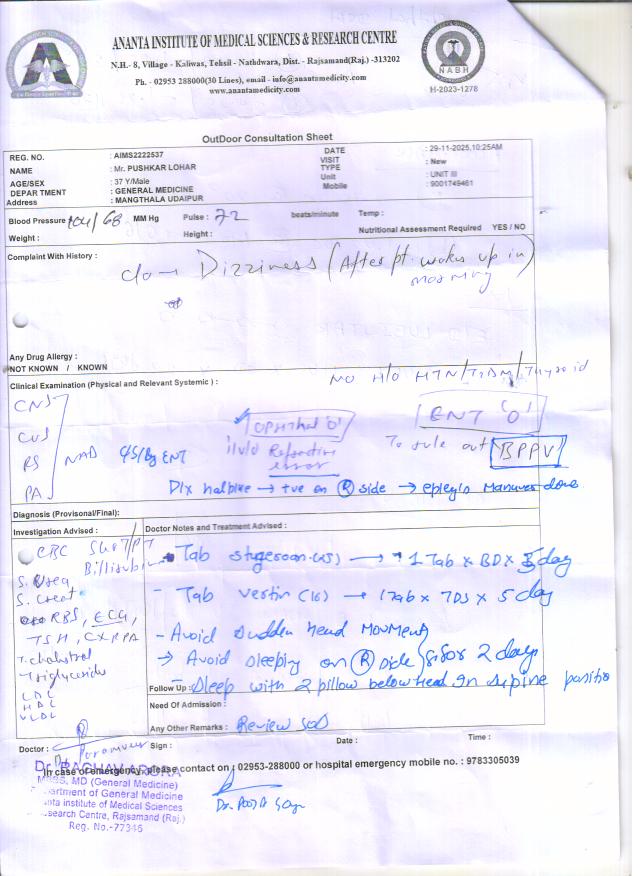 ANANTA INSTITUTE OF MEDICAL SCIENCES & RESEARCH CENTRE
N.H.- 8, Village - Kaliwas, Tehsil - Nathdwara, Dist. - Rajsamand(Raj.) -313202
Ph. - 02953 288000(30 Lines), email - info@anantamedicity.com
www.anantamedicity.com
NABH
H-2023-1278
OutDoor Consultation Sheet
REG. NO. : AIMS2222537 DATE : 29-11-2025,10:25AM
NAME : Mr. PUSHKAR LOHAR VISIT TYPE : New
AGE/SEX : 37 Y/Male Unit : UNIT III
DEPARTMENT : GENERAL MEDICINE Mobile : 9001749461
Address : MANGTHALA UDAIPUR
Blood Pressure : 104/68 MM Hg Pulse : 72 beats/minute Temp :
Weight : Height : Nutritional Assessment Required YES / NO
Complaint With History :
c/o - Dizziness (After pt. wakes up in
morning
Any Drug Allergy :
NOT KNOWN / KNOWN
NO H/O HTN/T2DM/Thyroid
Clinical Examination (Physical and Relevant Systemic) :
CNS
CVS
RS NAD
PA
C/S/By ENT
Ophthal 'O'
i/v/o Refractive
error
ENT 'O'
To rule out BPPV
Dix halpike → +ve on R side → epley's Manuver done
Diagnosis (Provisonal/Final):
Investigation Advised : Doctor Notes and Treatment Advised :
CBC SGOT/PT
Bilirubin
S. Urea
S. Creat
RBS, ECG,
TSH, CXR PA
T. cholestrol
Triglyceride
LDL
HDL
VLDL
- Tab stugeron (25) → 1 Tab x BD x 5 day
- Tab vertin (16) → 1 Tab x TDS x 5 day
- Avoid sudden head Movment
→ Avoid sleeping on R side for 2 days
- Sleep with 2 pillow below head in supine position
Follow Up :
Need Of Admission :
Any Other Remarks : Review SOS
Doctor : Sign : Date : Time :
In case of emergency, please contact on : 02953-288000 or hospital emergency mobile no. : 9783305039
Dr. RAGHAV ARORA
MBBS, MD (General Medicine)
Department of General Medicine
Ananta institute of Medical Sciences
Research Centre, Rajsamand (Raj.)
Reg. No.-77346